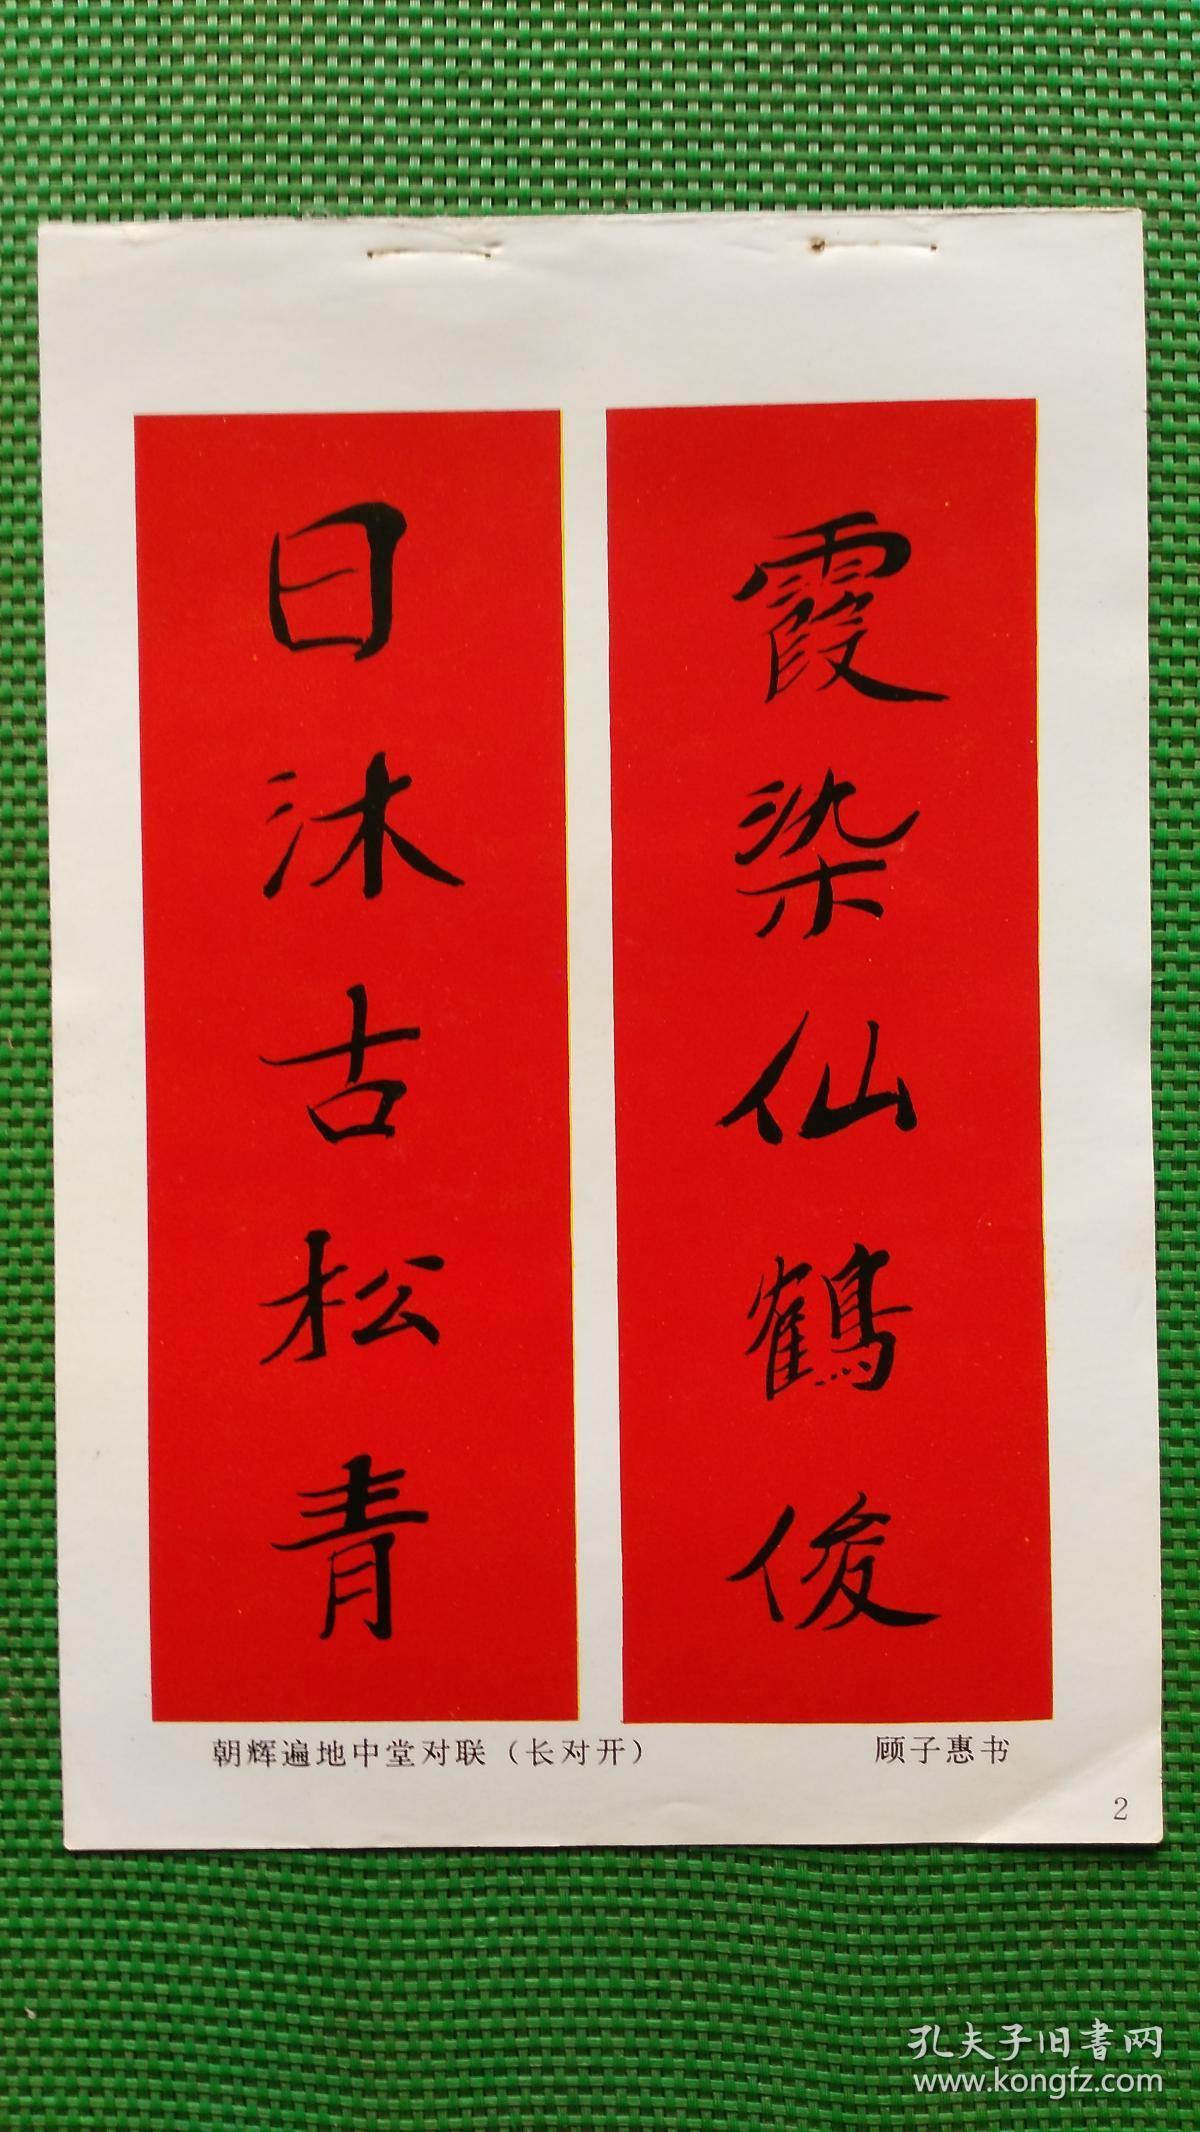 霞染仙鶴俊
日沐古松青
朝辉遍地中堂对联（长对开）
顾子惠书
2
孔夫子旧書网
www.kongfz.com